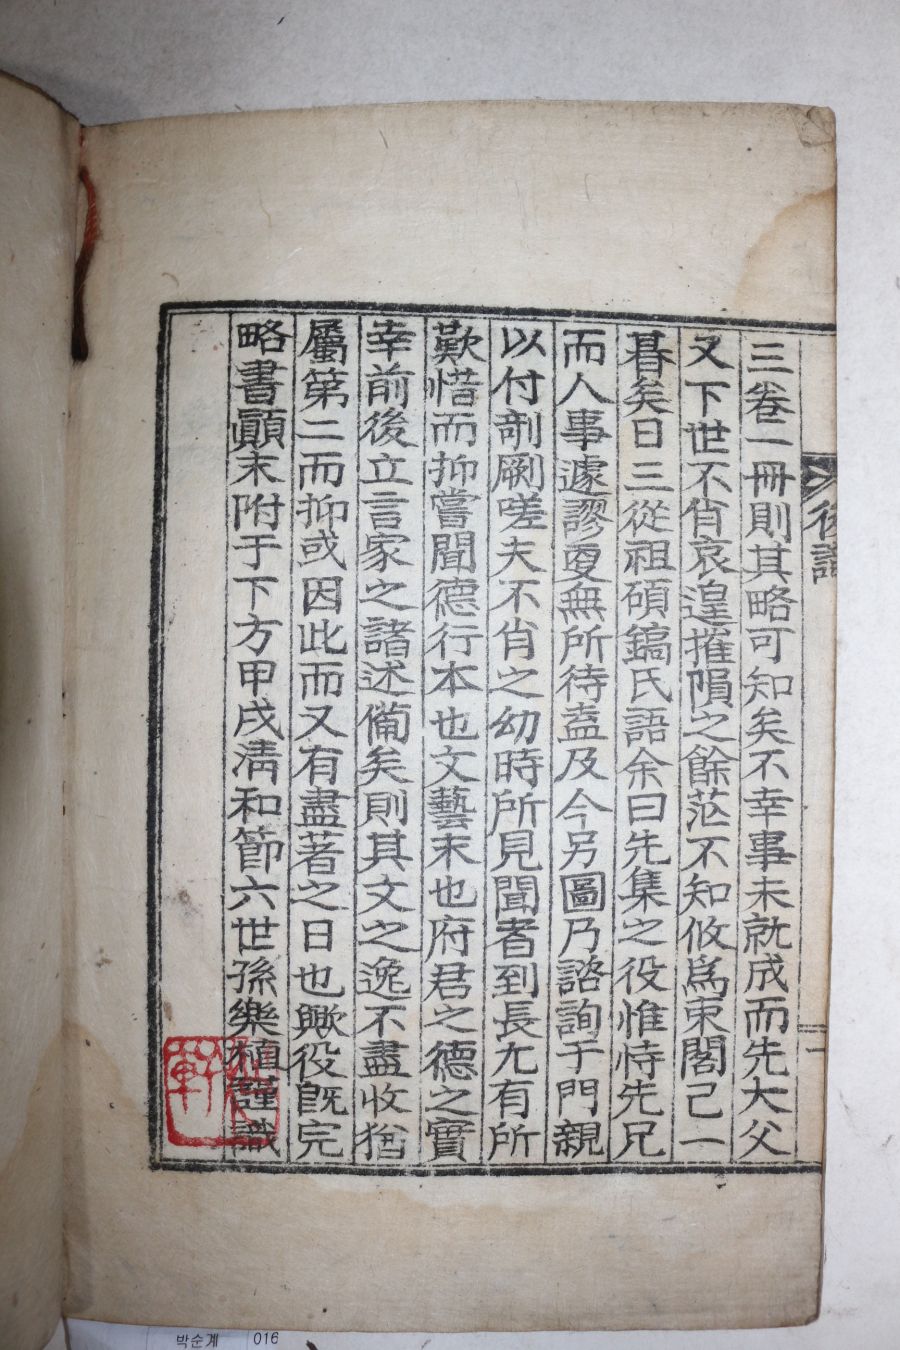 後識
一
三卷一冊則其略可知矣不幸事未就成而先大父
又下世不肖哀遑摧隕之餘茫不知攸爲東閣己一
朞矣日三從祖碩鎬氏語余曰先集之役惟恃先兄
而人事遽謬更無所待盍及今另圖乃諮詢于門親
以付剞劂嗟夫不肖之幼時所見聞者到長尤有所
歎惜而抑嘗聞德行本也文藝末也府君之德之實
幸前後立言家之諸述備矣則其文之逸不盡收猶
屬第二而抑或因此而又有盡著之日也歟役旣完
略書顚末附于下方甲戌淸和節六世孫樂植謹識
軒
박순계 016